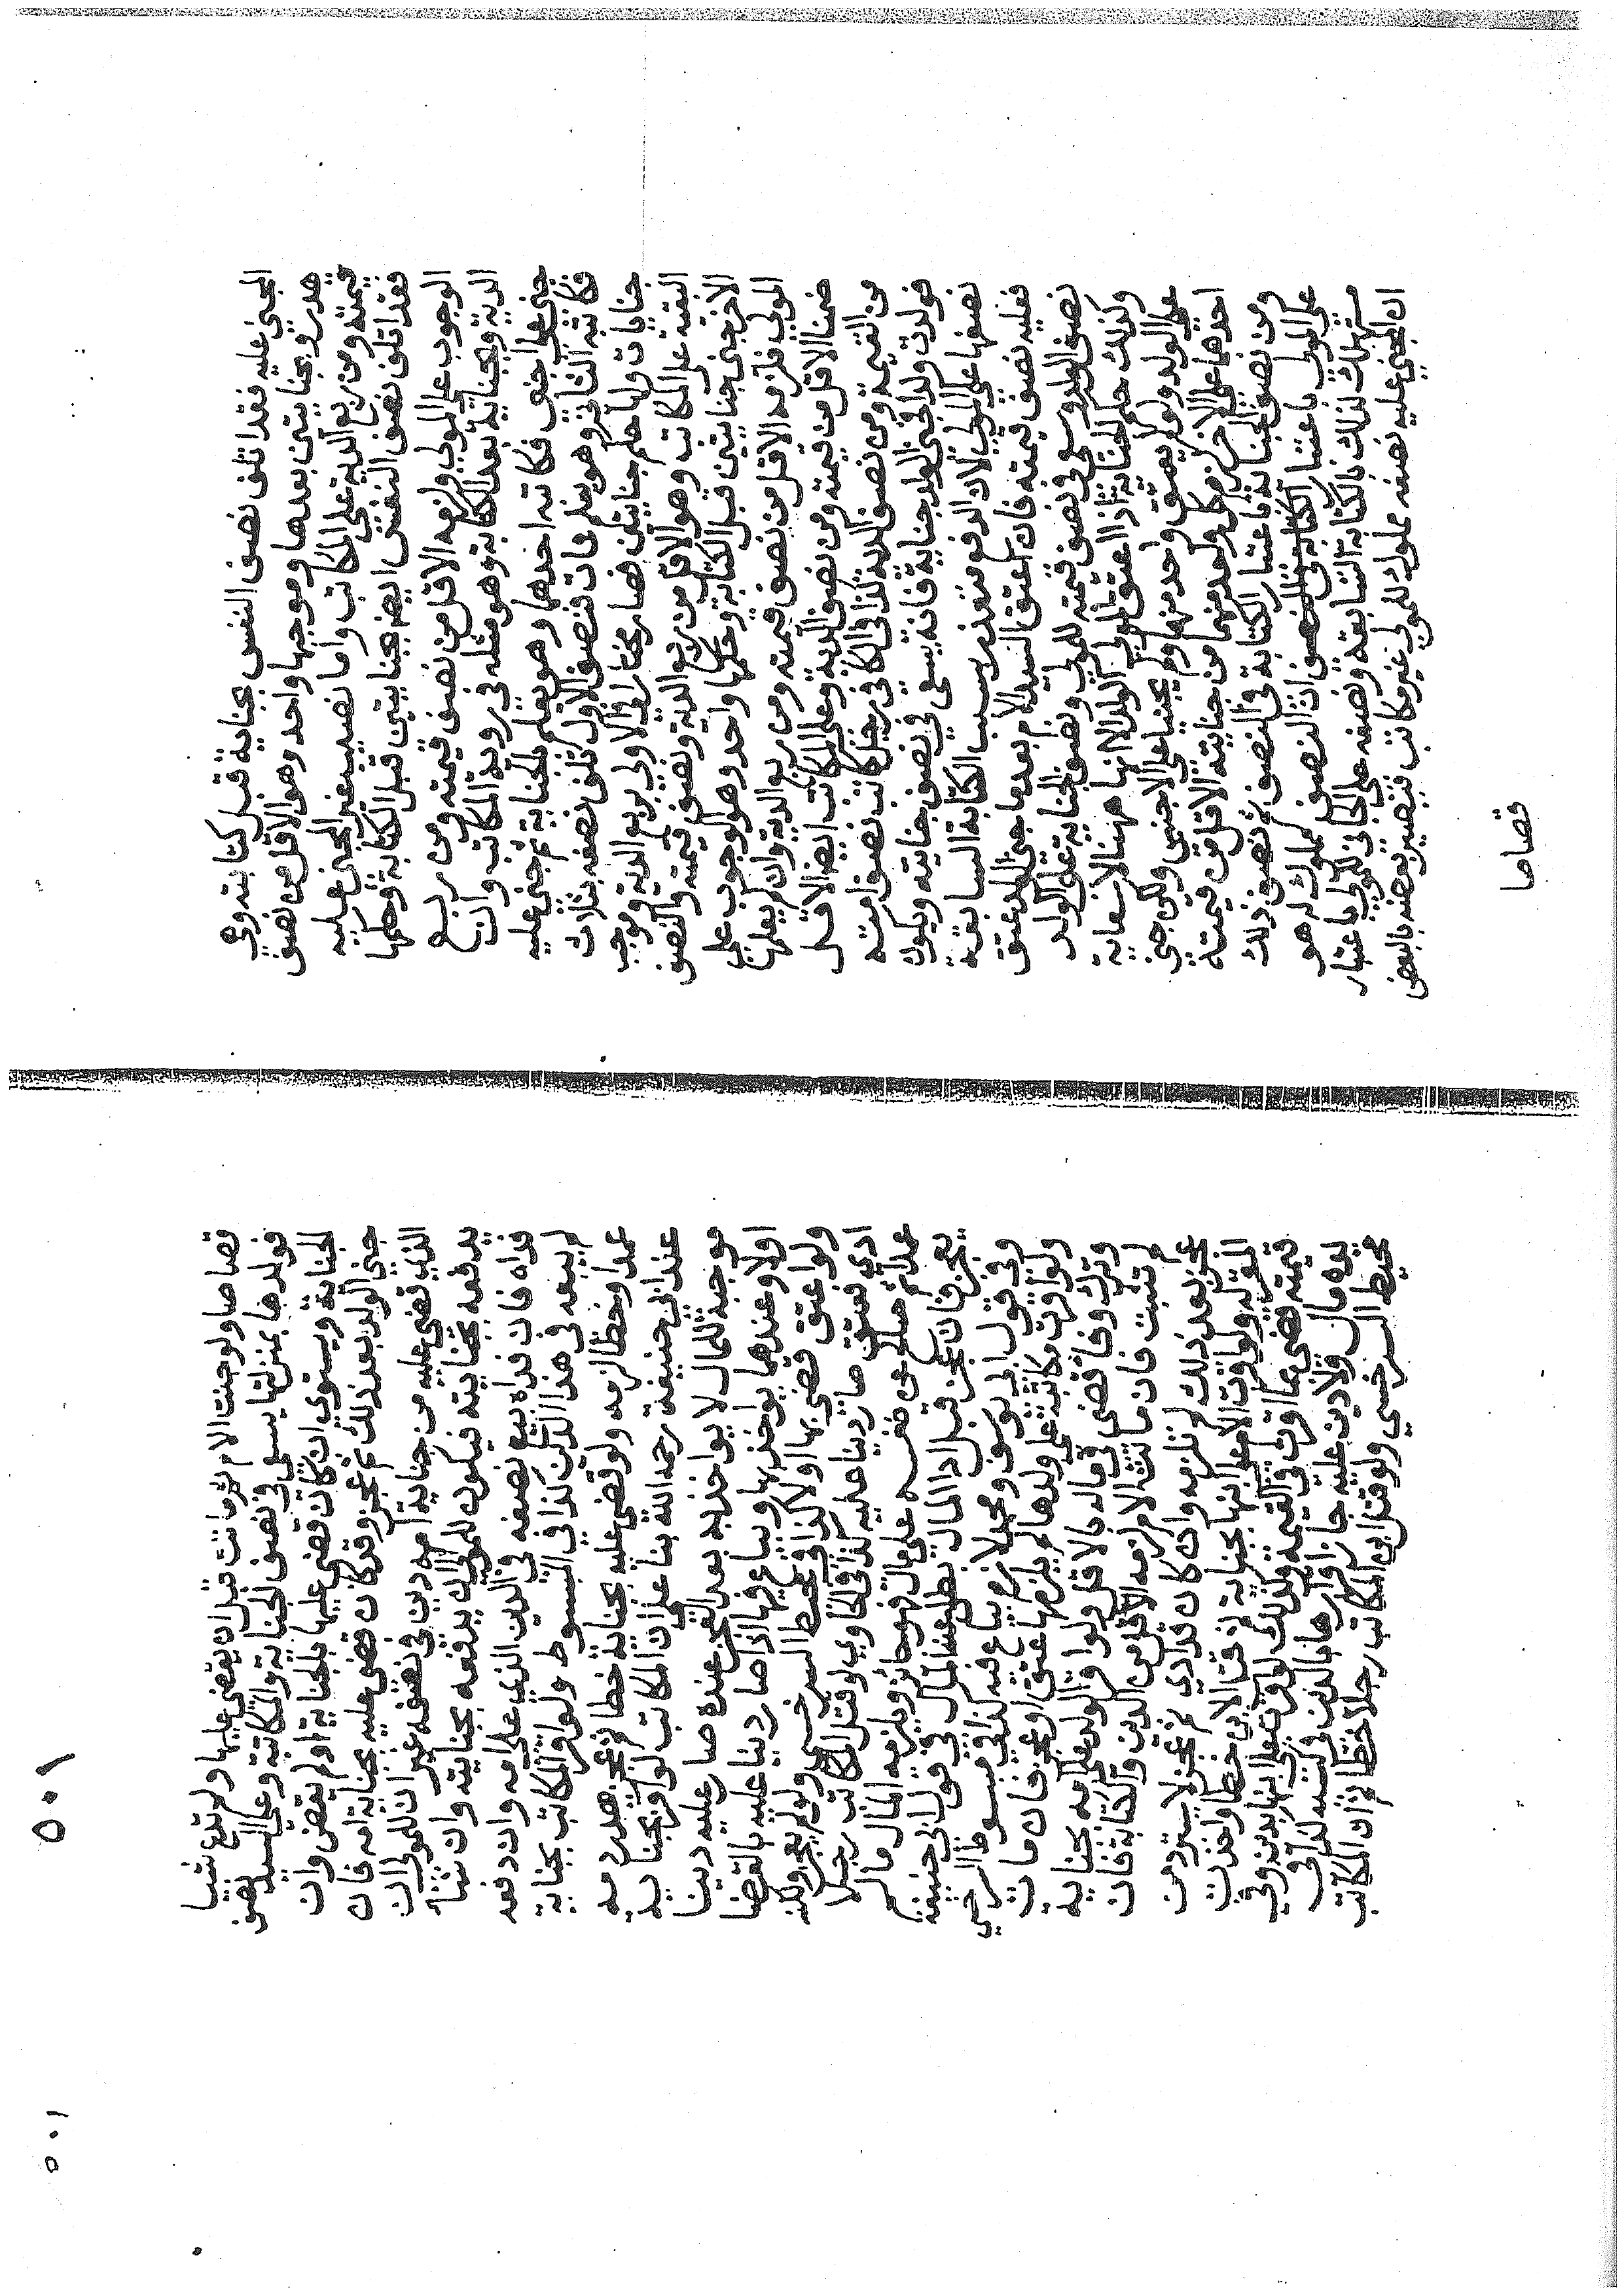 المجني عليه فقد اتلف نصف النفس بجناية قبل كتابته وهي
هدر وبجنايتين بعدها وموجبها واحد وهو الاقل من نصف
قيمته ومن ربع الدية على المكاتب واما نصيب غير المجني عليه
فقد اتلف نصف النفس ايضا بجنايتين قبل الكتابة وحكمها
الوجوب على المولى ولزمه الاقل من نصف قيمته ومن ربع
الدية وبجناية بعد الكتابة وهو مثله في رقبة المكاتب وان
جني على اجنبي فكاتبه احدهما وهو يعلم بالجناية ثم جني عليه
فكاتبه الثاني وهو يعلم فمات فنصف الاول تلف نصفه بثلاث
جنايات ولها حكم جنايتين فصار مختارا في الاولى بربع الدية وموجب
البقية على المكاتب وهو الاقل من ربع الدية ونصف قيمته والنصف
الاخر جني جنايتين قبل الكتابة وحكمها واحد وهو الوجوب على
المولى فلزمه الاقل من نصف قيمته ومن ربع الدية وان لم يعلما
ضمنا الاقل من قيمته ومن نصف الدية وعلى المكاتب ايضا الاقل
من القيمة ومن نصف الدية كذا في الكافي رجل كاتب نصف امته
فولدت ولدا فجني الولد جناية فانه يسعى في نصف جنايته ويكون
نصفها على المولى لان الدفع متعذر بسبب الكتابة السابقة
فعليه نصف قيمته فان اعتق السيد الام بعدما جني الولد عتق
نصف الولد وسعى في نصف قيمته للمولى ونصف الجناية على الولد
وكذلك حكم الجناية اذا اعتق المولى الولد الا انها ههنا لا سعاية
على الولد ولو لم يعتق واحد منهما ولم يجنيا على الاجنبي ولكن جني
احدهما على الاخر لزم كل واحد منهما من جنايته الاقل من قيمته
ومن نصف الجناية باعتبار الكتابة في النصف ثم نصف ذلك
على المولى باعتبار الكتابة في النصف ان النصف مملوك له هو
مستهلك لذلك بالكتابة السابقة ونصفه على الجاني للمولى باعتبار
ان المجني عليه نصفه مملوك للمولى غير مكاتب فيصير بعضه بالبعض
قصاصا
قصاصا ولو جنت الام ثم ماتت قبل ان يقضى عليها ولم تدع شيئا
فولدها بمنزلتها يسعى في نصف الجناية والكتابة وعلى السيد نصف
الجناية ويستوي ان كان قضي عليها بالجناية او لم يقض وان
جني الولد بعد ذلك ثم عجز وقد كان قضي عليه بجناية امه فان
الذي قضي عليه من جناية امه دين في نصفه غير ان للمولى ان
يدفعه بجنايته فيكون للمولى ان يدفعه بجنايته وان شاء
فداه فان فداه بيع نصفه في الدين الذي على امه وان دفعه
لم يبعه في هذا الدين كذا في المبسوط ولو اقر المكاتب بجناية
عمدا وخطا لزمه ولو قضي عليه بجناية خطا ثم عجز هدر دمه
عند ابي حنيفة رحمه الله بناء على ان المكاتب لو اقر بجناية
موجبة للمال لا يواخذ به بعد العجز عنده صار عليه دينا
اولا وعندهما يواخذ بها ويباع فيها اذا صار دينا عليه بالقضا
ولو اعتق قضي بها اولا كذا في محيط السرخسي ولو لم يعجز ولكنه
ادى فعتق صار دينا عليه كذا في الحاوي ولو قتل المكاتب رجلا
عمدا ثم صالح عن نفسه على مال فهو جائز ويلزمه المال ما لم
يعجز فان عجز قبل اداء المال بطل عنه المال في قول ابي حنيفة
وفي قول ابي يوسف ومحمد لازم يباع فيه كذا في مبسوط السرخسي
ولو اقرت مكاتبة على ولدها لم يلزمها عتق او عجز فان مات
وترك وفاء قضي في ماله بالاقل ولو اقر الولد على امه بجناية
لم تثبت فان ماتت الام لزمه الاقل من الدين والكتابة فان
عجز بعد ذلك لم تلزمه وان كان قد ادى ثم عجز لا يسترد من
المقر له ولو اقرت الام على ابنها بجناية ثم قتل الابن خطا واخذت
قيمته قضي مما اقرت في القيمة وكذلك لو اقرت على ابنها بدين وفي
يده مال ولا دين عليه جاز اقرارها بالدين في كسبه كذا في
محيط السرخسي ولو قتل ابن المكاتب رجلا خطا ثم ان المكاتب
٥٠١
٥٠١